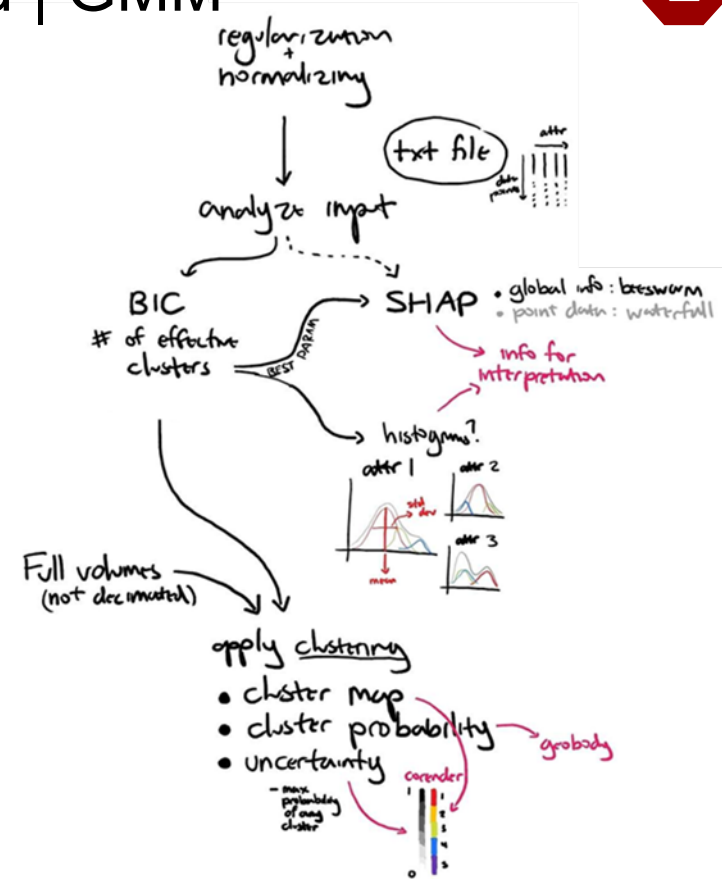 | GMM
regularization
+
normalizing
txt file
attr
data
points
analyze input
BIC
# of effective
clusters
BEST PARAM
SHAP
• global info : beeswarm
• point data : waterfall
info for
interpretation
histograms?
attr 1
std
dev
mean
attr 2
attr 3
Full volumes
(not decimated)
apply clustering
• cluster map
• cluster probability
• uncertainty
- max
probability
of any
cluster
geobody
corender
1
0
1
2
3
4
5